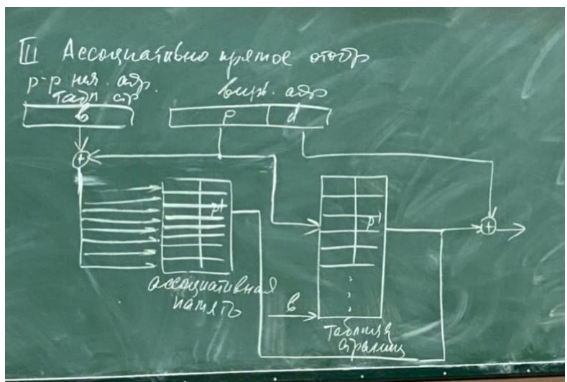 III Ассоциативно прямое отобр
р-р нач. адр.
табл стр
вирт. адр
b
p d
+
p'
p'
+
ассоциативная
память
b
таблица
страниц